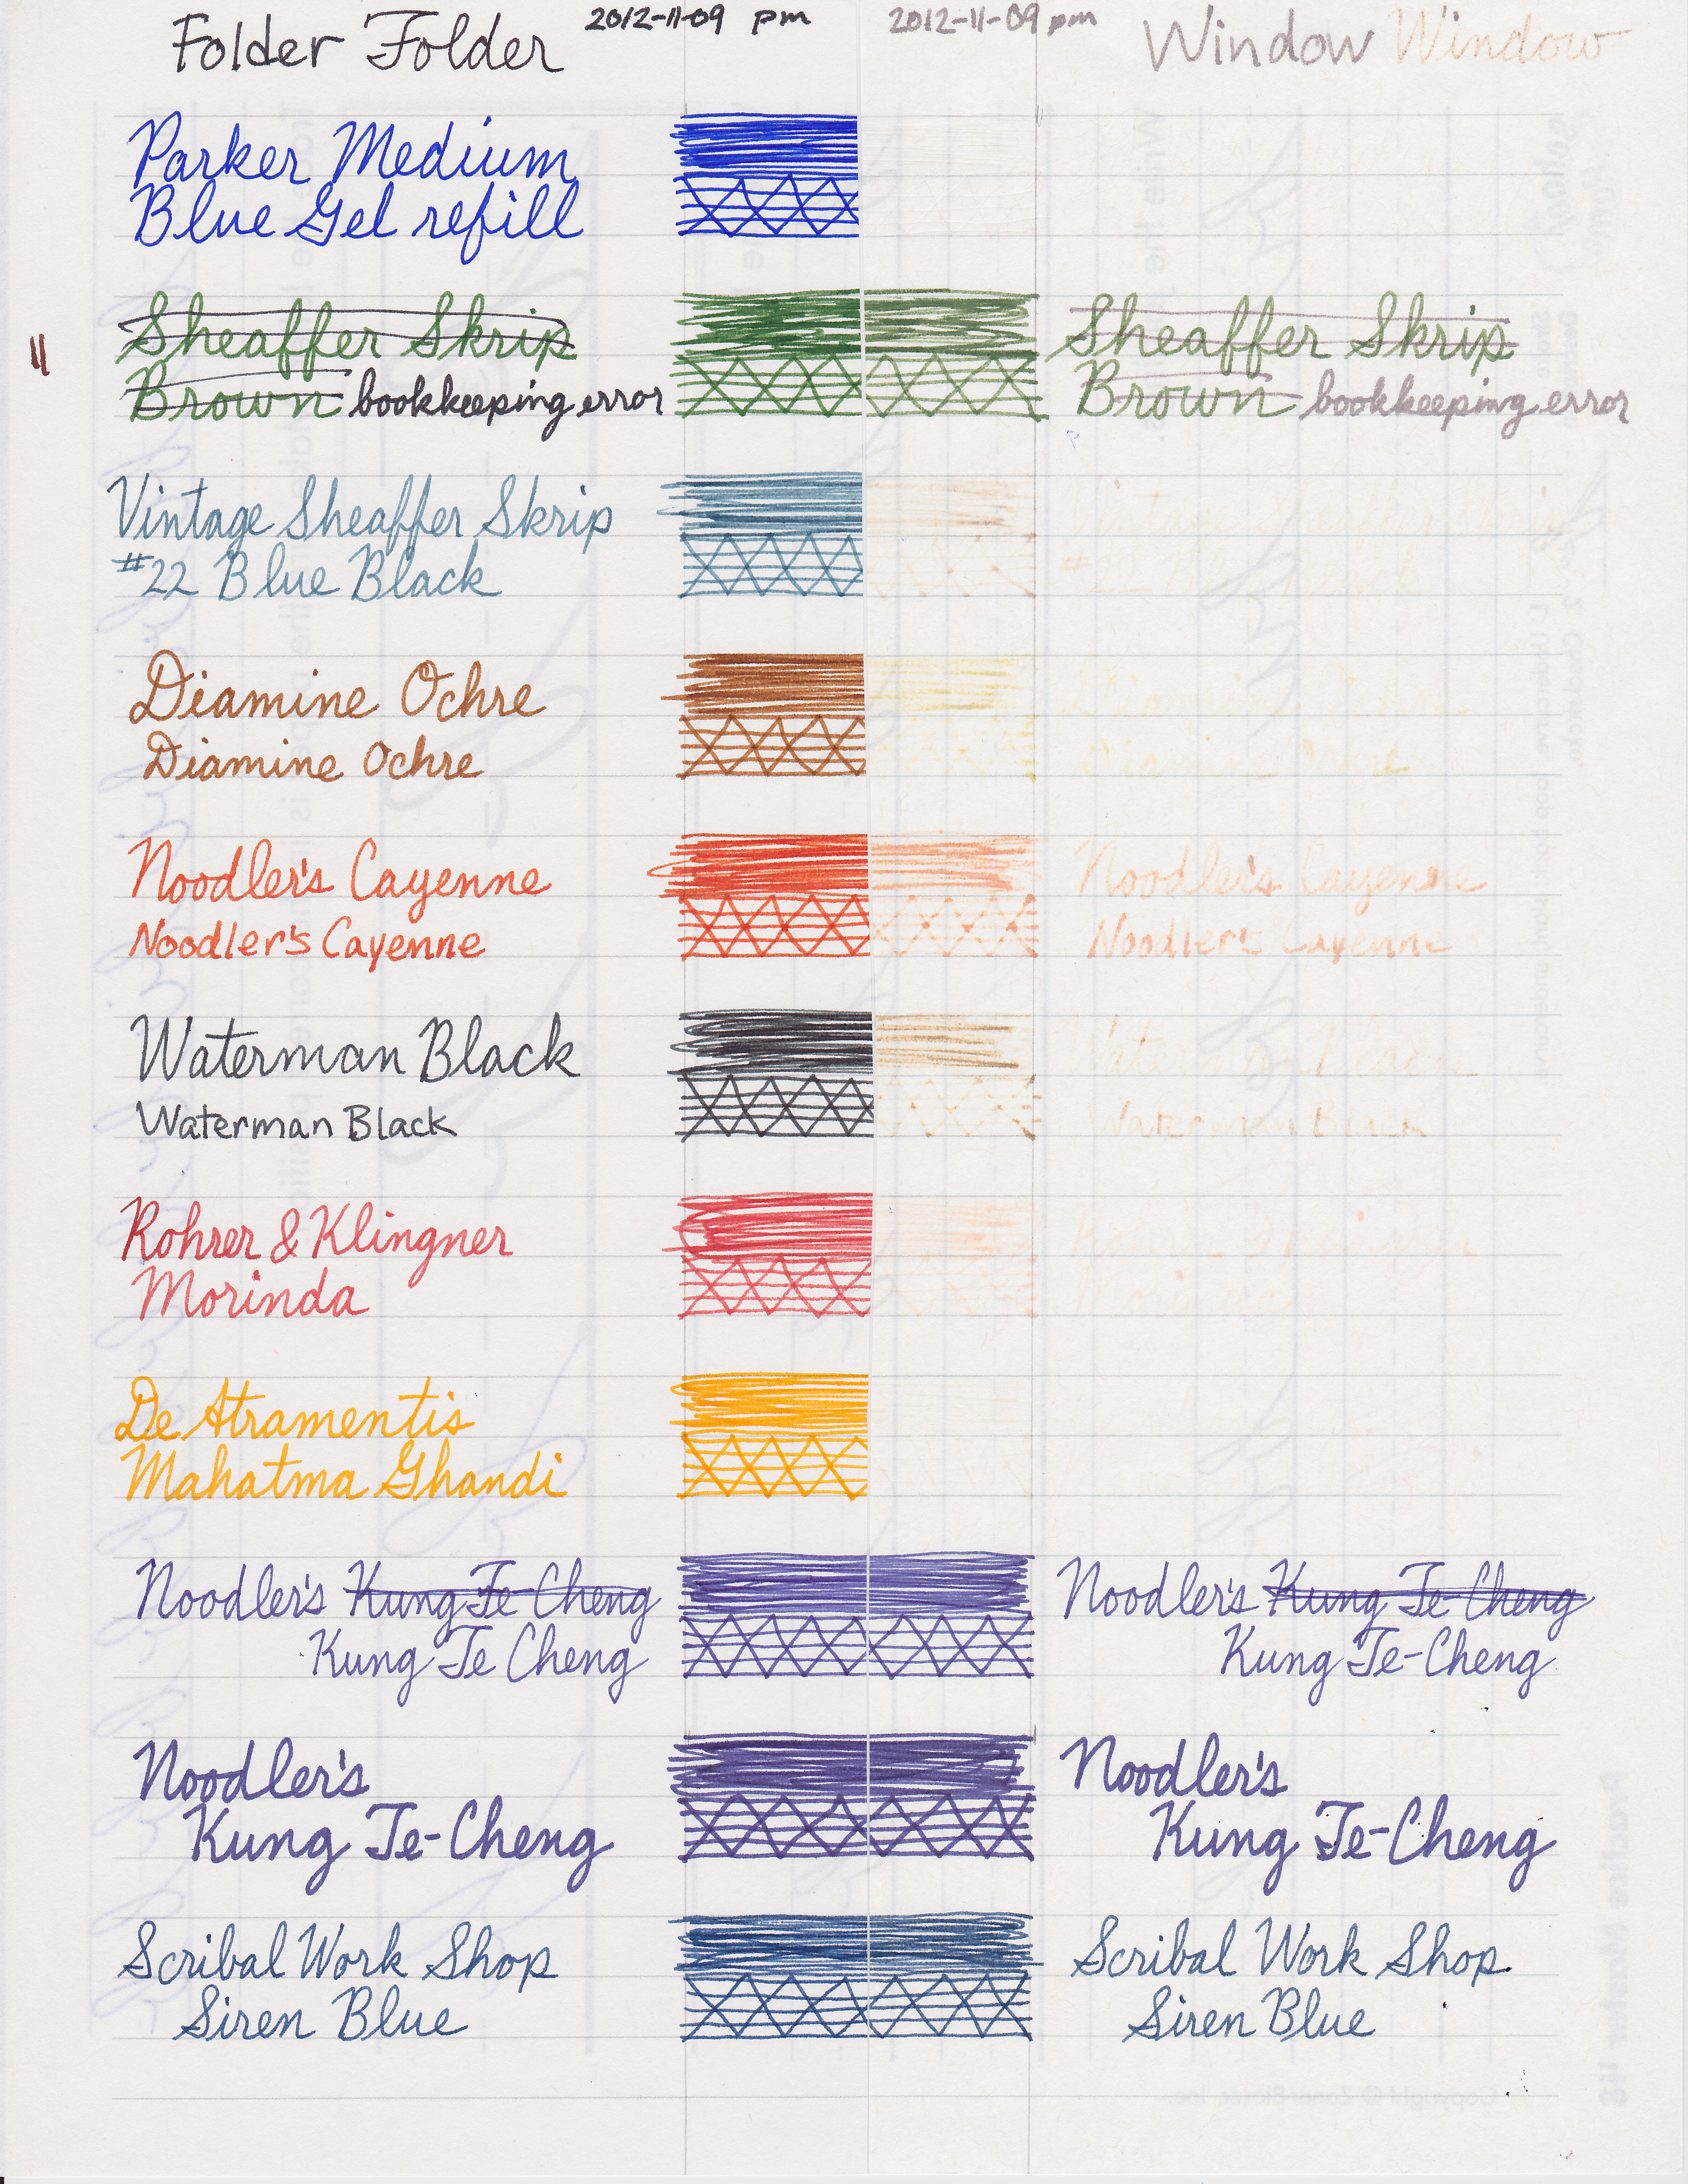 Folder Folder 2012-11-09 pm 2012-11-09 pm Window Window
Parker Medium
Blue Gel refill
Sheaffer Skrip Sheaffer Skrip
11
Brown bookkeeping error Brown bookkeeping error
Vintage Sheaffer Skrip
#22 Blue Black #22
Diamine Ochre Diamine
Diamine Ochre Diamine
Noodler's Cayenne Noodler's Cayenne
Noodler's Cayenne Noodler's Cayenne
Waterman Black
Waterman Black Waterman Black
Rohrer & Klingner
Morinda
De Atramentis
Mahatma Ghandi
Noodler's Kung Te-Cheng Noodler's Kung Te-Cheng
Kung Te Cheng Kung Te-Cheng
Noodler's Noodler's
Kung Te-Cheng Kung Te-Cheng
Scribal Work Shop Scribal Work Shop.
Siren Blue Siren Blue